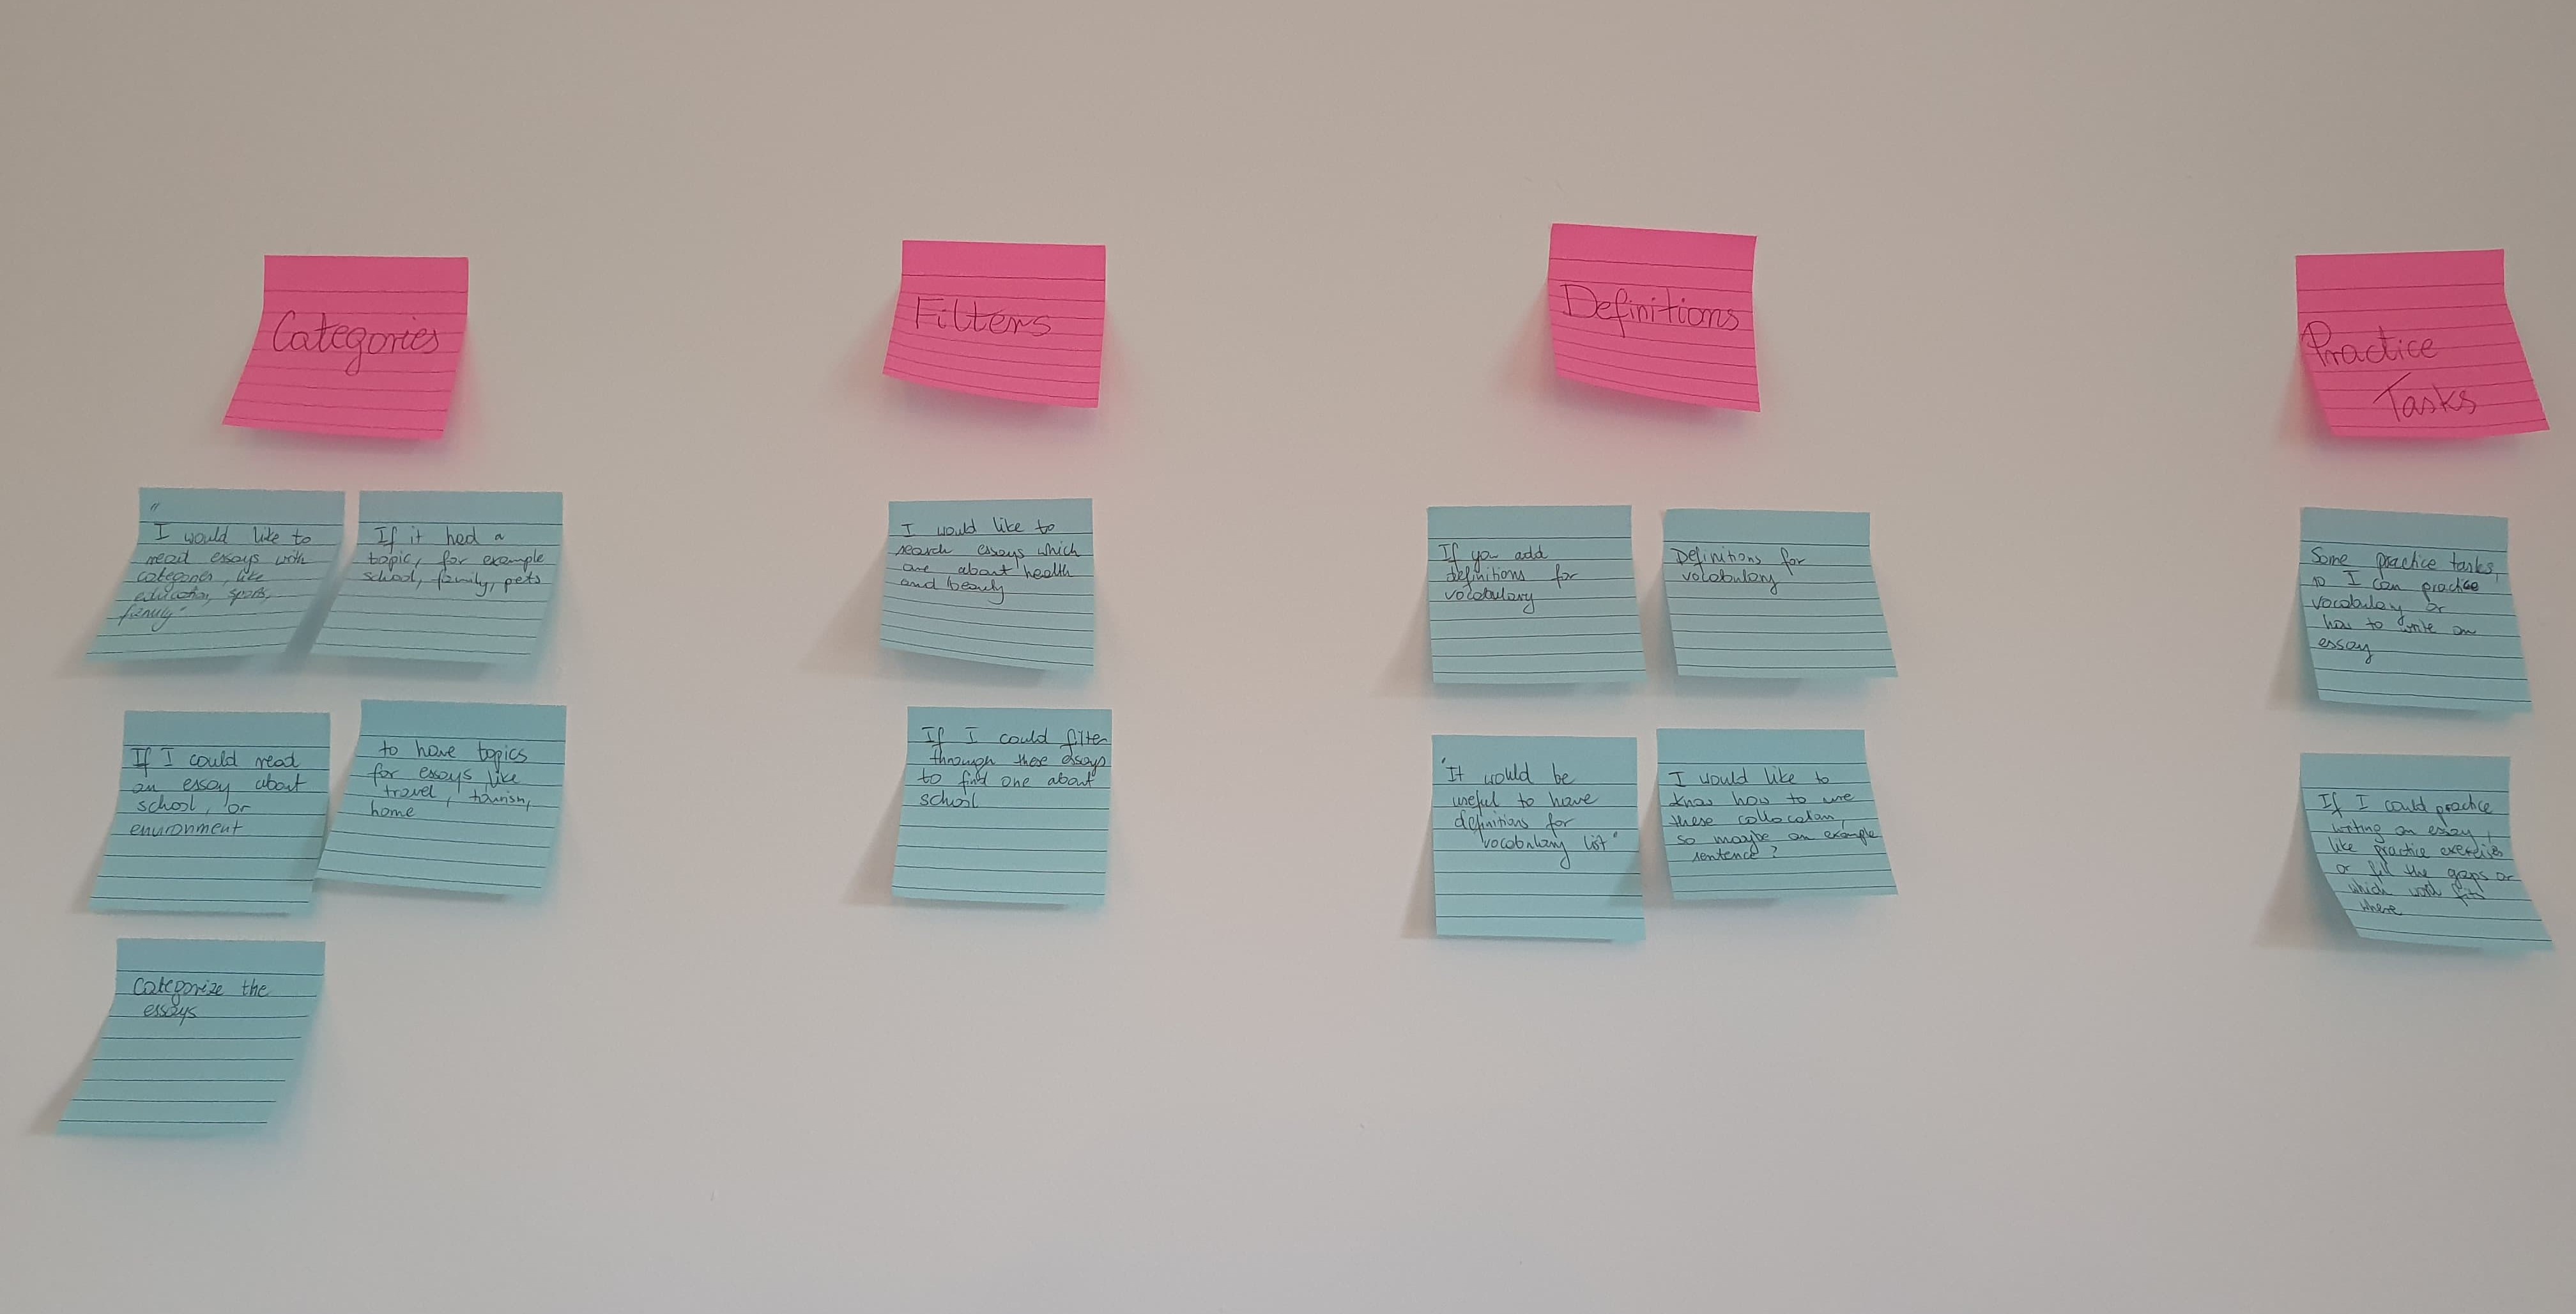 Categories
"
I would like to
read essays with
categories, like
education, sports,
family"
If it had a
topic, for example
school, family, pets
If I could read
an essay about
school, or
environment
to have topics
for essays like
travel, tourism,
home
Categorize the
essays
Filters
I would like to
search essays which
are about health
and beauty
If I could filter
through these essays
to find one about
school
Definitions
If you add
definitions for
vocabulary
Definitions for
vocabulary
"It would be
useful to have
definitions for
vocabulary list"
I would like to
know how to use
these collocation,
so maybe an example
sentence?
Practice
Tasks
Some practice tasks,
so I can practice
vocabulary or
how to write an
essay
If I could practice
writing an essay,
like practice exercises
or fill the gaps or
which word fits
where